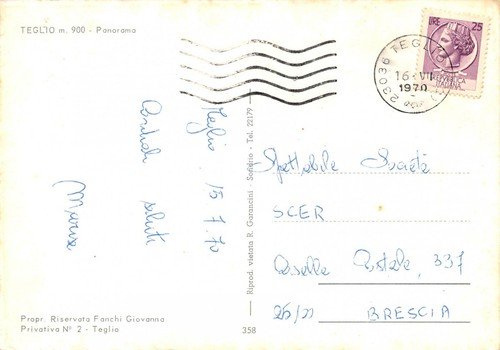 TEGLIO m. 900 - Panorama
LIRE 25
REPUBBLICA
ITALIANA
23036 TEGLIO
16 VII
1970
Teglio 15.7.70
Cordiali saluti
Riprod. vietata R. Garancini - Sondrio - Tel. 22179
Spettabile Società
SCER
Casella Postale, 337
BRESCIA
Propr. Riservata Fanchi Giovanna
Privativa N° 2 - Teglio
358